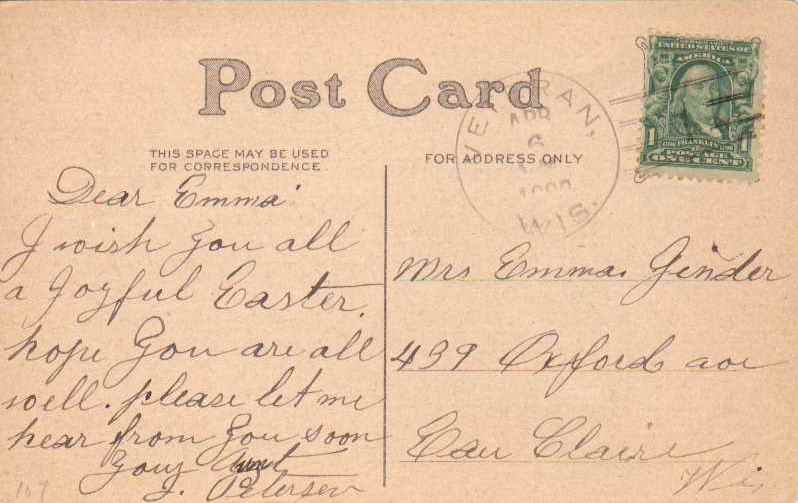 Post Card
THIS SPACE MAY BE USED
FOR CORRESPONDENCE.
FOR ADDRESS ONLY
VETERAN,
APR
6
WIS.
UNITED STATES OF
AMERICA
1 FRANKLIN 1
POSTAGE
ONE CENT
Dear Emma
I wish you all
a Joyful Easter.
hope you are all
well. please let me
hear from you soon
Your Aunt
J. Petersen
Mrs Emma Ginder
439 Oxford ave
Eau Claire
Wis
107